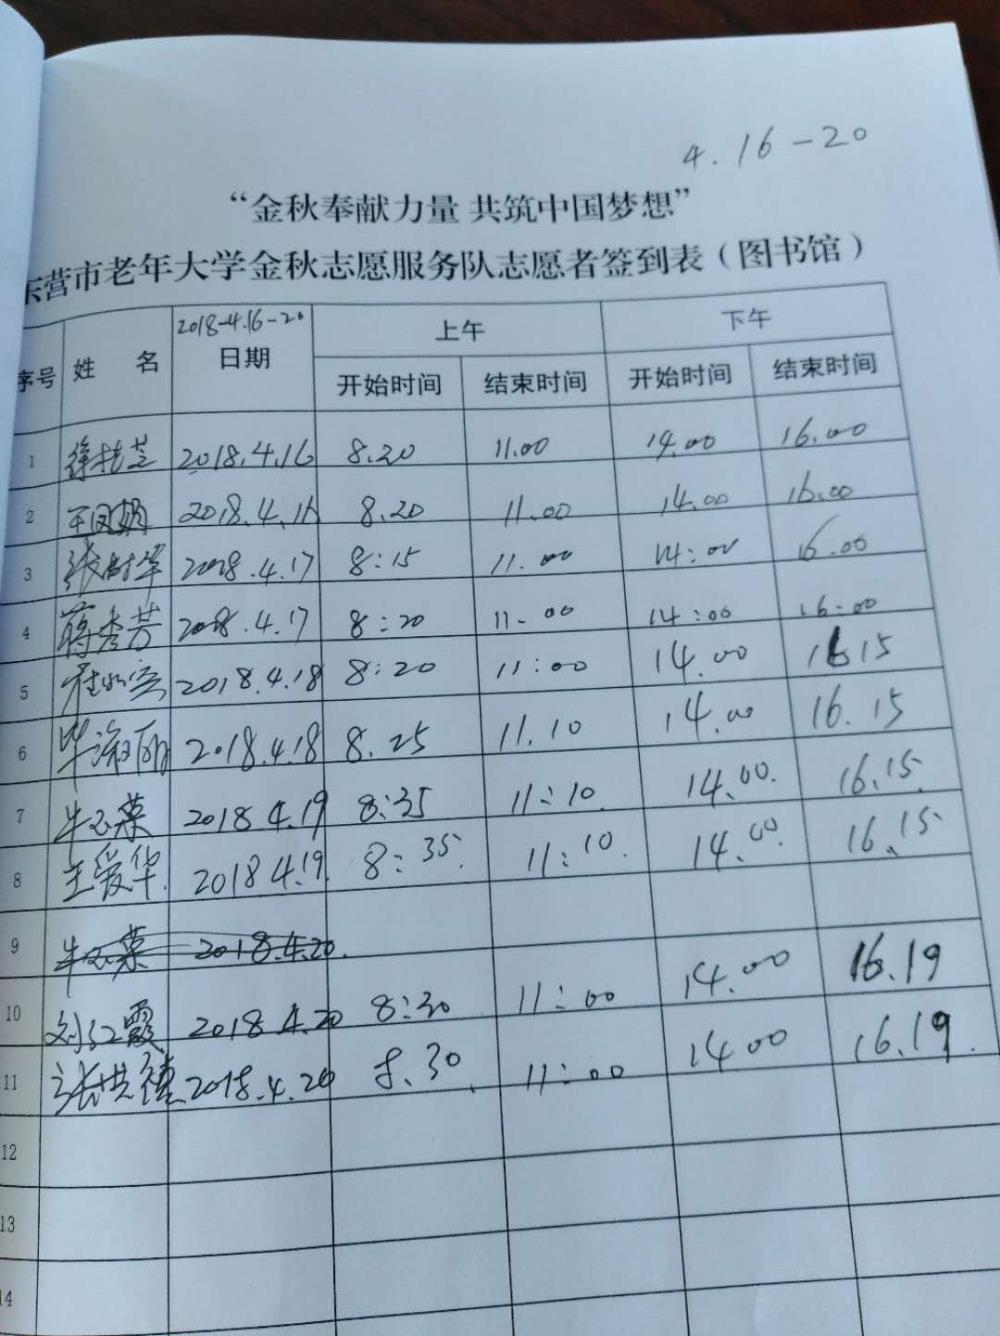 4.16-20
“金秋奉献力量 共筑中国梦想”
东营市老年大学金秋志愿服务队志愿者签到表（图书馆）
序号 姓 名 2018-4.16-20 日期 上午 下午
开始时间 结束时间 开始时间 结束时间
1 2018.4.16 8.20 11.00 14.00 16.00
2 王凤娟 2018.4.16 8.20 11.00 14.00 16.00
3 2018.4.17 8:15 11.00 14:00 16.00
4 蒋秀芳 2018.4.17 8:20 11.00 14:00 16:00
5 2018.4.18 8:20 11:00 14.00 16 15
6 毕淑丽 2018.4.18 8.25 11.10 14.00 16.15
7 牛玉荣 2018 4.19 8:35 11:10. 14.00. 16.15.
8 王爱华. 2018 4.19. 8:35. 11:10. 14.00. 16.15.
9 牛玉荣 2018.4.20.
10 刘红霞 2018 4.20 8:30 11:00 14.00 16.19
11 张洪禧 2018.4.20 8.30. 11:00 14.00 16.19.
12
13
14